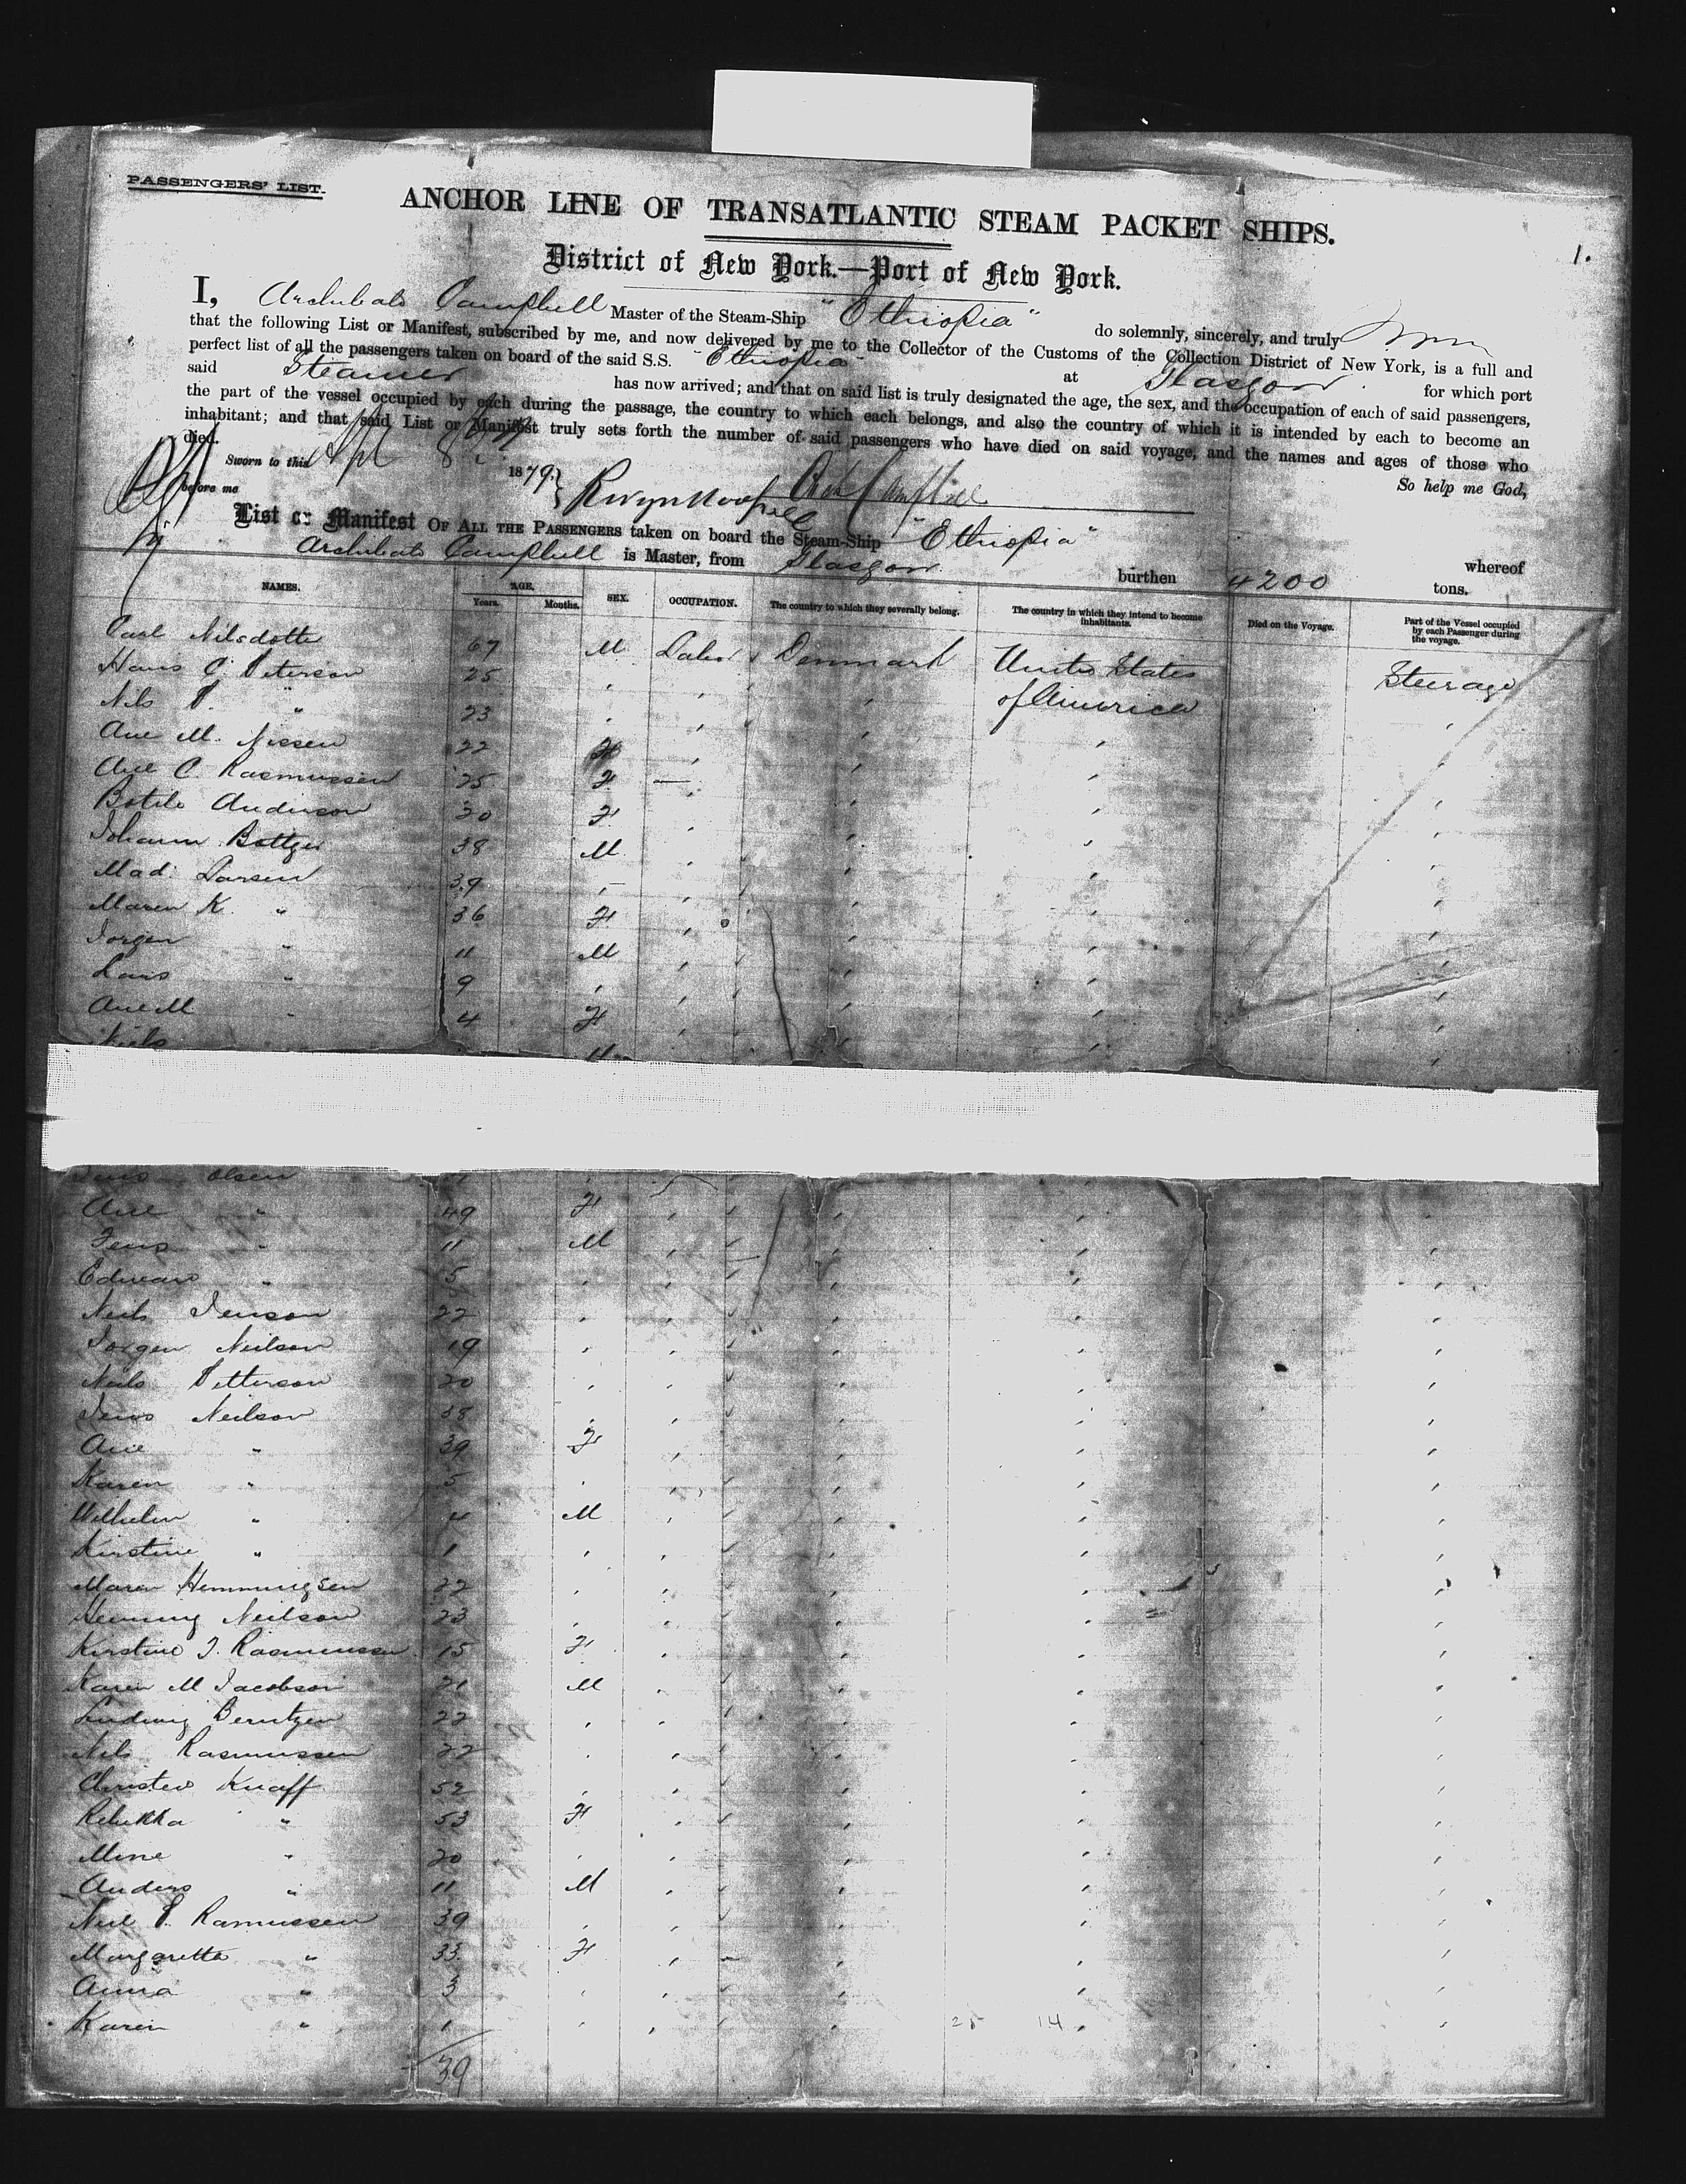 PASSENGERS' LIST.
ANCHOR LINE OF TRANSATLANTIC STEAM PACKET SHIPS.
1.
District of New York.—Port of New York.
I, Archibald Campbell Master of the Steam-Ship "Ethiopia" do solemnly, sincerely, and truly
that the following List or Manifest, subscribed by me, and now delivered by me to the Collector of the Customs of the Collection District of New York, is a full and
perfect list of all the passengers taken on board of the said S.S. "Ethiopia" at Glasgow for which port
said Steamer has now arrived; and that on said list is truly designated the age, the sex, and the occupation of each of said passengers,
the part of the vessel occupied by each during the passage, the country to which each belongs, and also the country of which it is intended by each to become an
inhabitant; and that said List or Manifest truly sets forth the number of said passengers who have died on said voyage, and the names and ages of those who
died.
So help me God,
Sworn to this Apl 8 1879.
before me
Arch Campbell
List or Manifest OF ALL THE PASSENGERS taken on board the Steam-Ship "Ethiopia" whereof
Archibald Campbell is Master, from Glasgow burthen 4200 tons.
NAMES. AGE. Years. Months. SEX. OCCUPATION. The country to which they severally belong. The country in which they intend to become inhabitants. Died on the Voyage. Part of the Vessel occupied by each Passenger during the voyage.
Carl Nilsdotte 67 M Labor Denmark United States Steerage
Hans C. Peterson 25 of America
Nils P. " 23
Ane M. Nissen 22 F
Ane C. Rasmussen 25 F
Botile Anderson 30 F
Johann Bottger 38 M
Mad. Larsen 39
Maren K. " 36 F
Jorgen " 11 M
Lars " 9
Ane M " 4 F
Niels M
Jens Olsen
Ane " 49 F
Jens " 11 M
Edward " 5
Neils Jenson 22
Jorgen Neilson 19
Neils Petterson 20
Jens Neilson 38
Ane " 39 F
Karen " 5
Wilhelm " 4 M
Kirstine " 1
Maren Hemmingsen 22
Henning Neilson 23
Kirstine J. Rasmussen 15 F
Karen M Jacobson 21 M
Ludwig Berntzen 22
Nils Rasmussen 22
Christen Knaff 52
Rebekka " 53 F
Mine " 20
Anders " 11 M
Neil P. Ramussen 39
Margaretta " 33 F
Anna " 3
Karen " 1
39